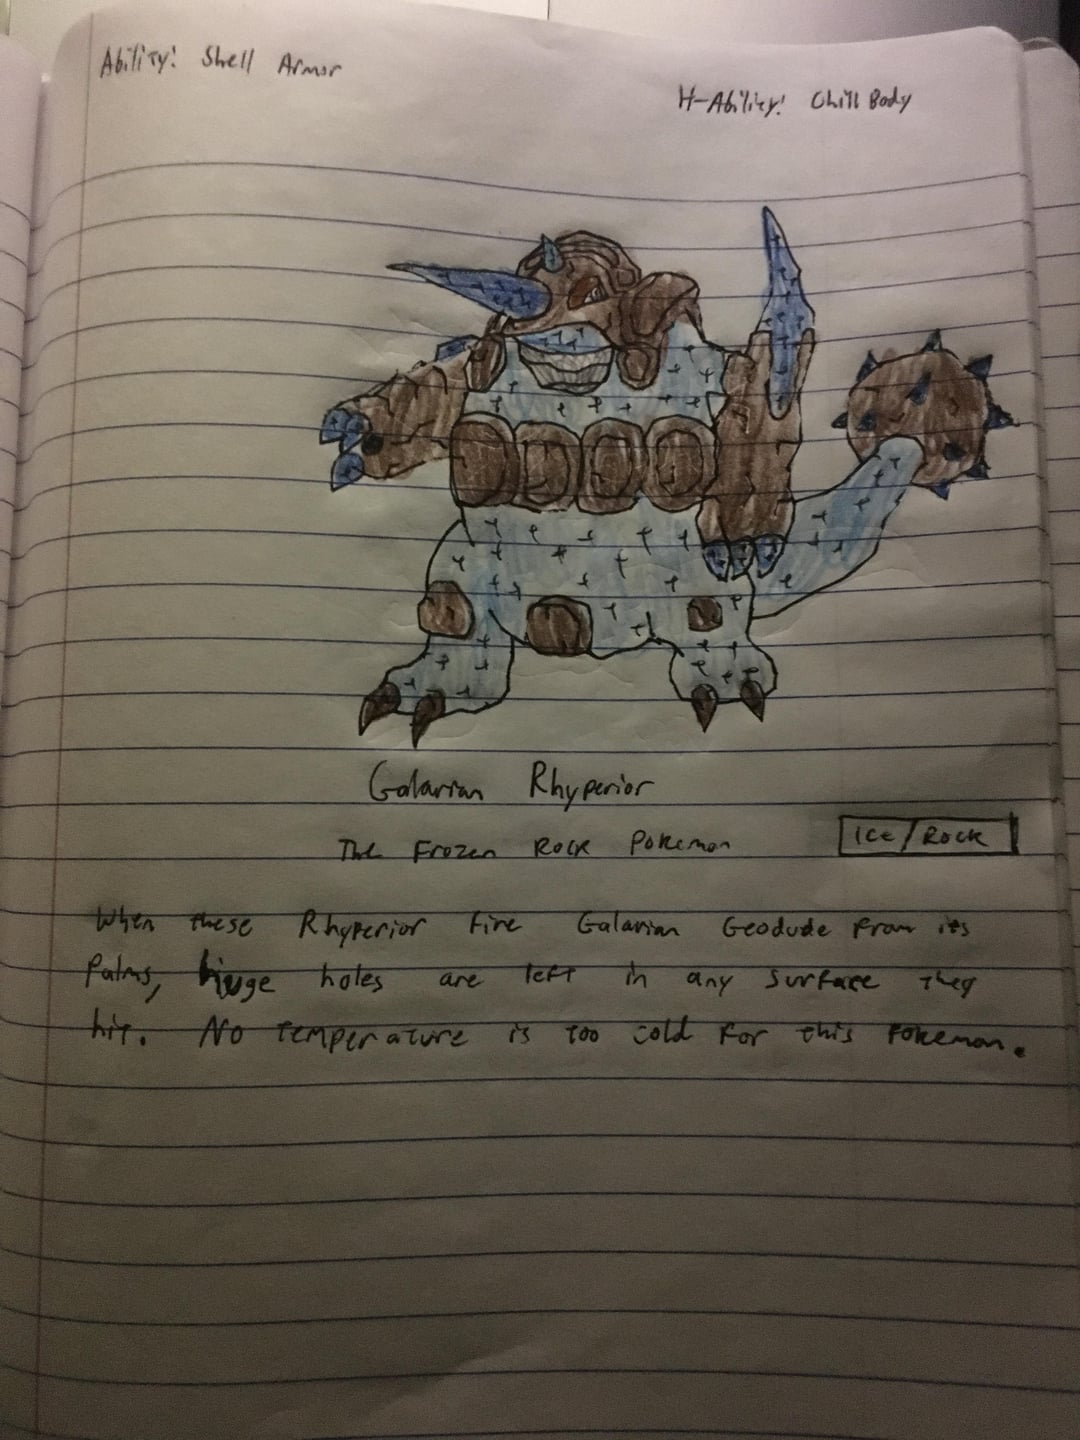 Ability: Shell Armor
H-Ability: Chill Body
Galarian Rhyperior
The Frozen Rock Pokemon
Ice/Rock
When these Rhyperior fire Galarian Geodude from its
palms, huge holes are left in any surface they
hit. No temperature is too cold for this Pokemon.